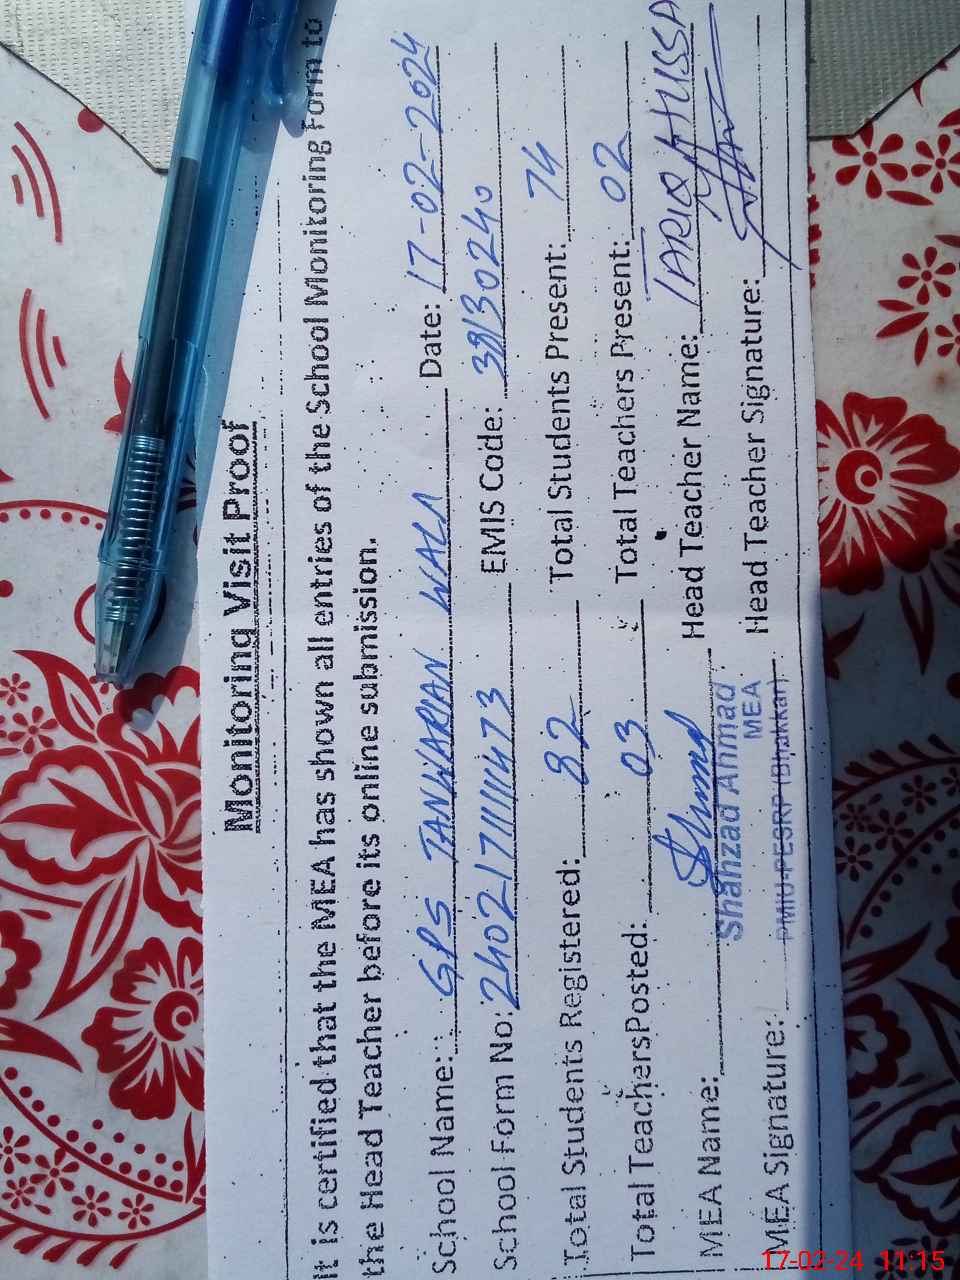 Monitoring Visit Proof
It is certified that the MEA has shown all entries of the School Monitoring Form to
the Head Teacher before its online submission.
School Name: GPS TANWARIAN WALA Date: 17-02-2024
School Form No: 2402171111473 EMIS Code: 38130240
Total Students Registered: 82 Total Students Present: 74
Total Teachers Posted: 03 Total Teachers Present: 02
MEA Name: Head Teacher Name: TARIQ HUSSA
Shahzad Ahmad
MEA
MEA Signature: PMIU-PESRP (Bhakkar) Head Teacher Signature:
17-02-24 11:15